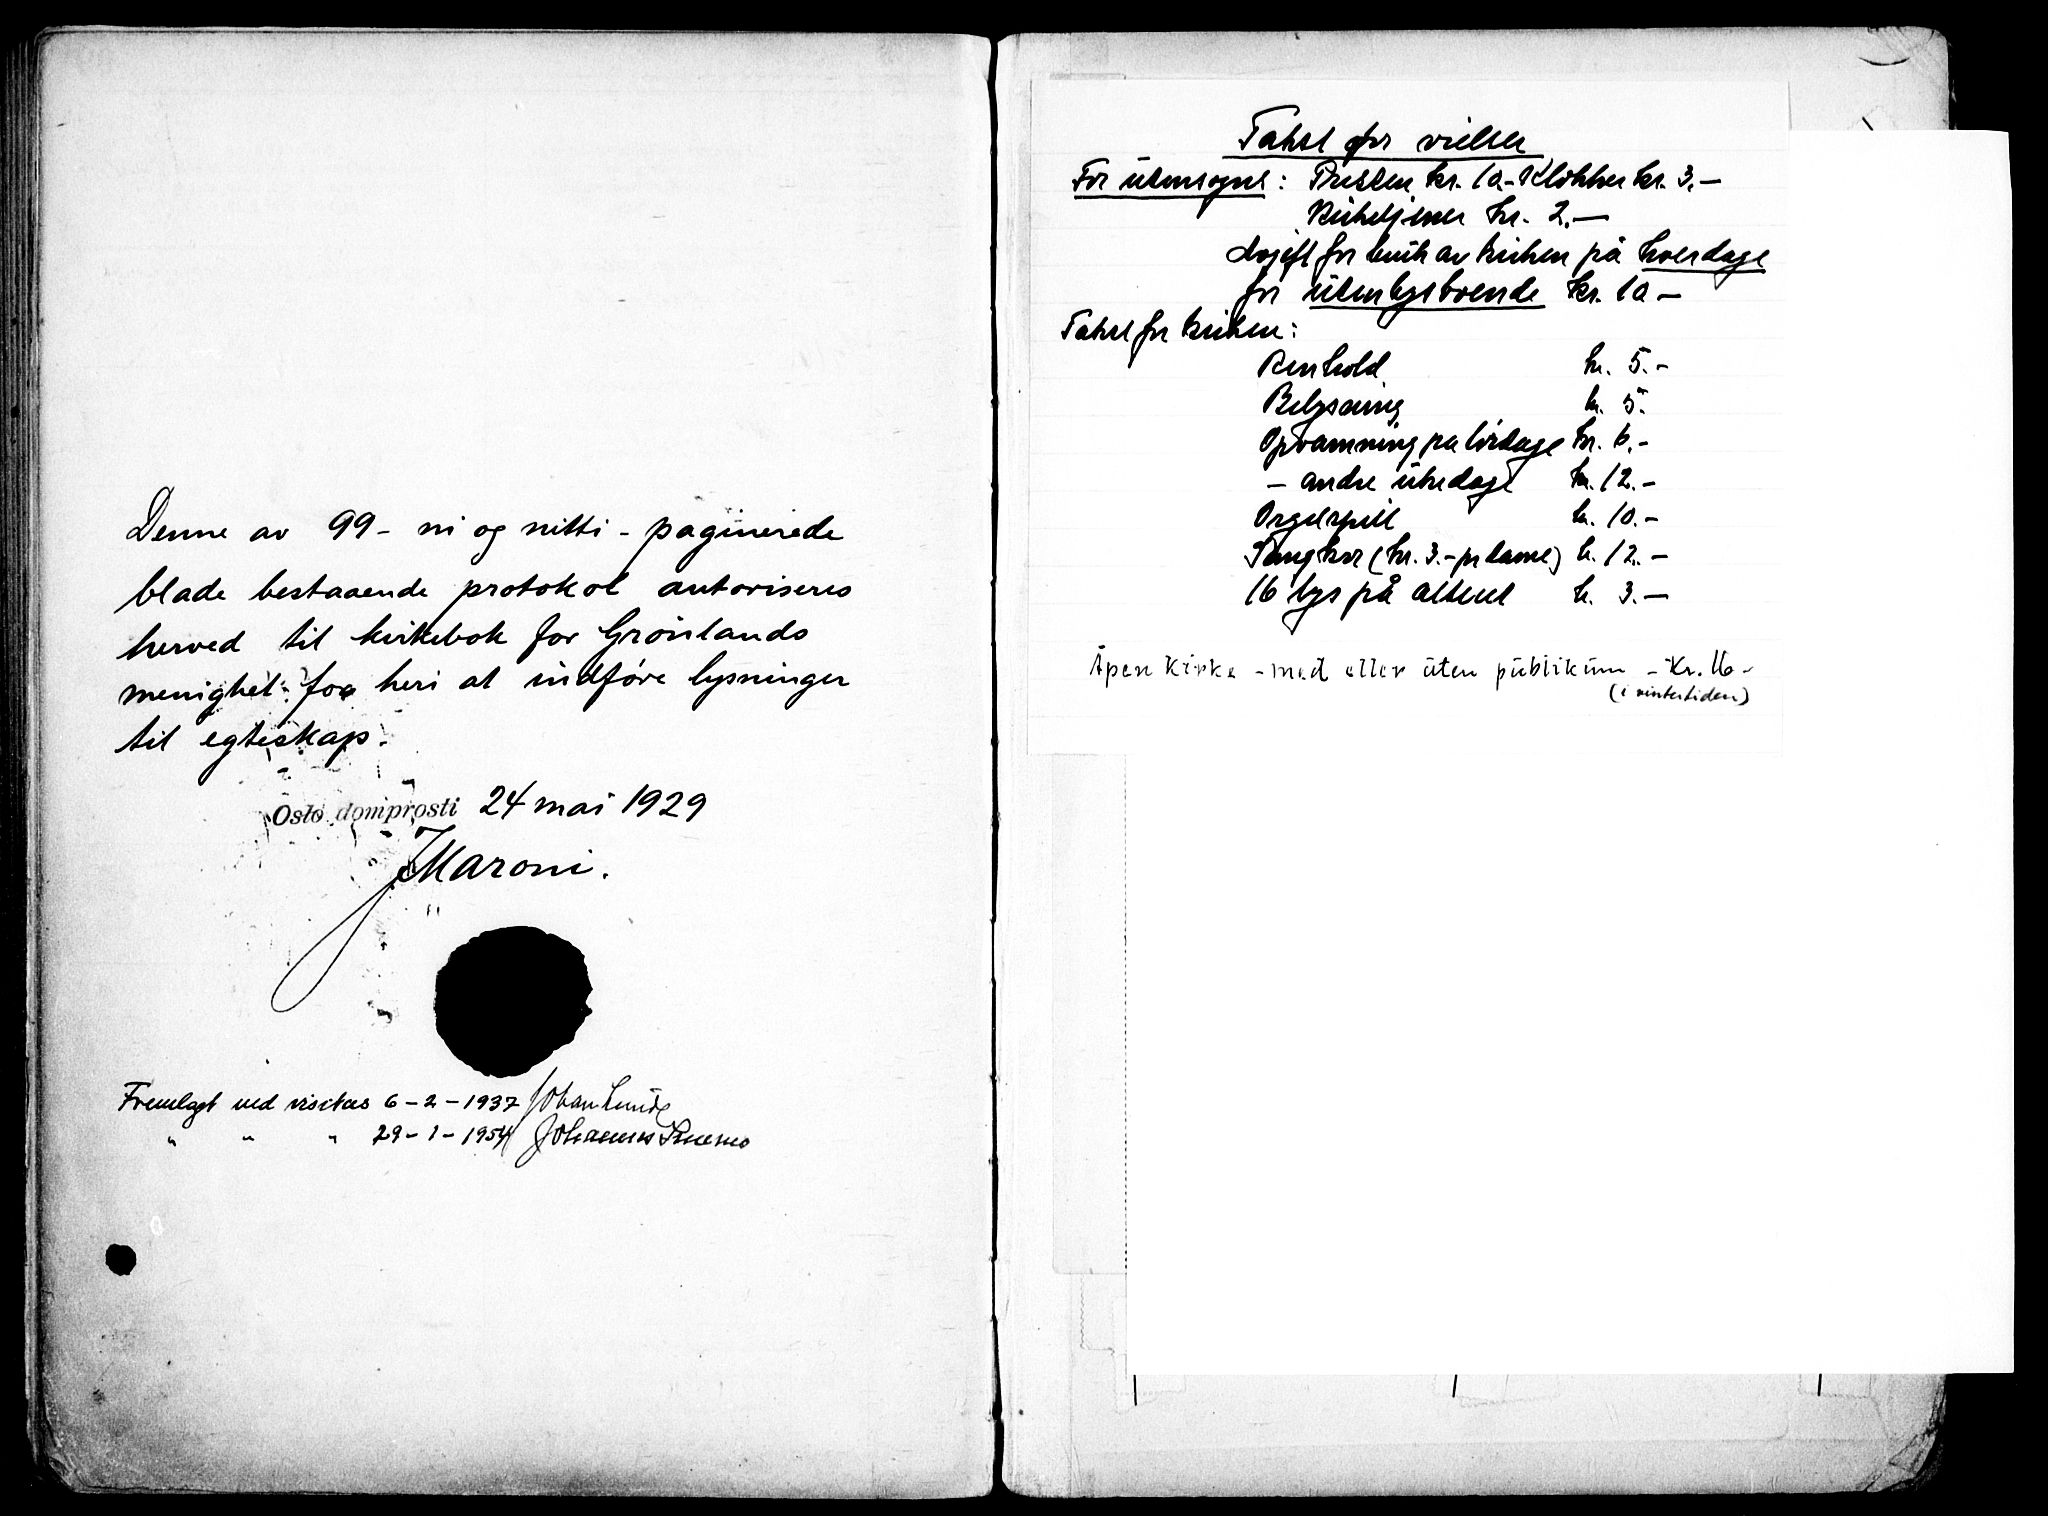 Denne av 99 - ni og nitti - paginerede
blade bestaaende protokol autoriseres
herved til kirkebok for Grønlands
menighet for heri at indføre lysninger
til egteskap.
Oslo domprosti 24 mai 1929
J Maroni.
Fremlagt ved visitas 6-2-1937 Johan Lunde
" " " 29-1-1954 Johannes Smemo
Takst for vielser
For utensogns: Presten kr. 10.- Klokker kr. 3.-
Kirketjener kr. 2.-
Avgift for bruk av kirken på hverdage
for utenbysboende kr. 10 -
Takst for kirken:
Renhold kr. 5.-
Belysning kr. 5.
Opvarmning på lördage kr. 6.-
- andre ukedage kr. 12.-
Orgelspill kr. 10.-
Sangkor (kr. 3.- pr dame) kr. 12.-
16 lys på alteret kr. 3.-
Åpen kirke - med eller uten publikum - Kr. 16 -
(i vintertiden)